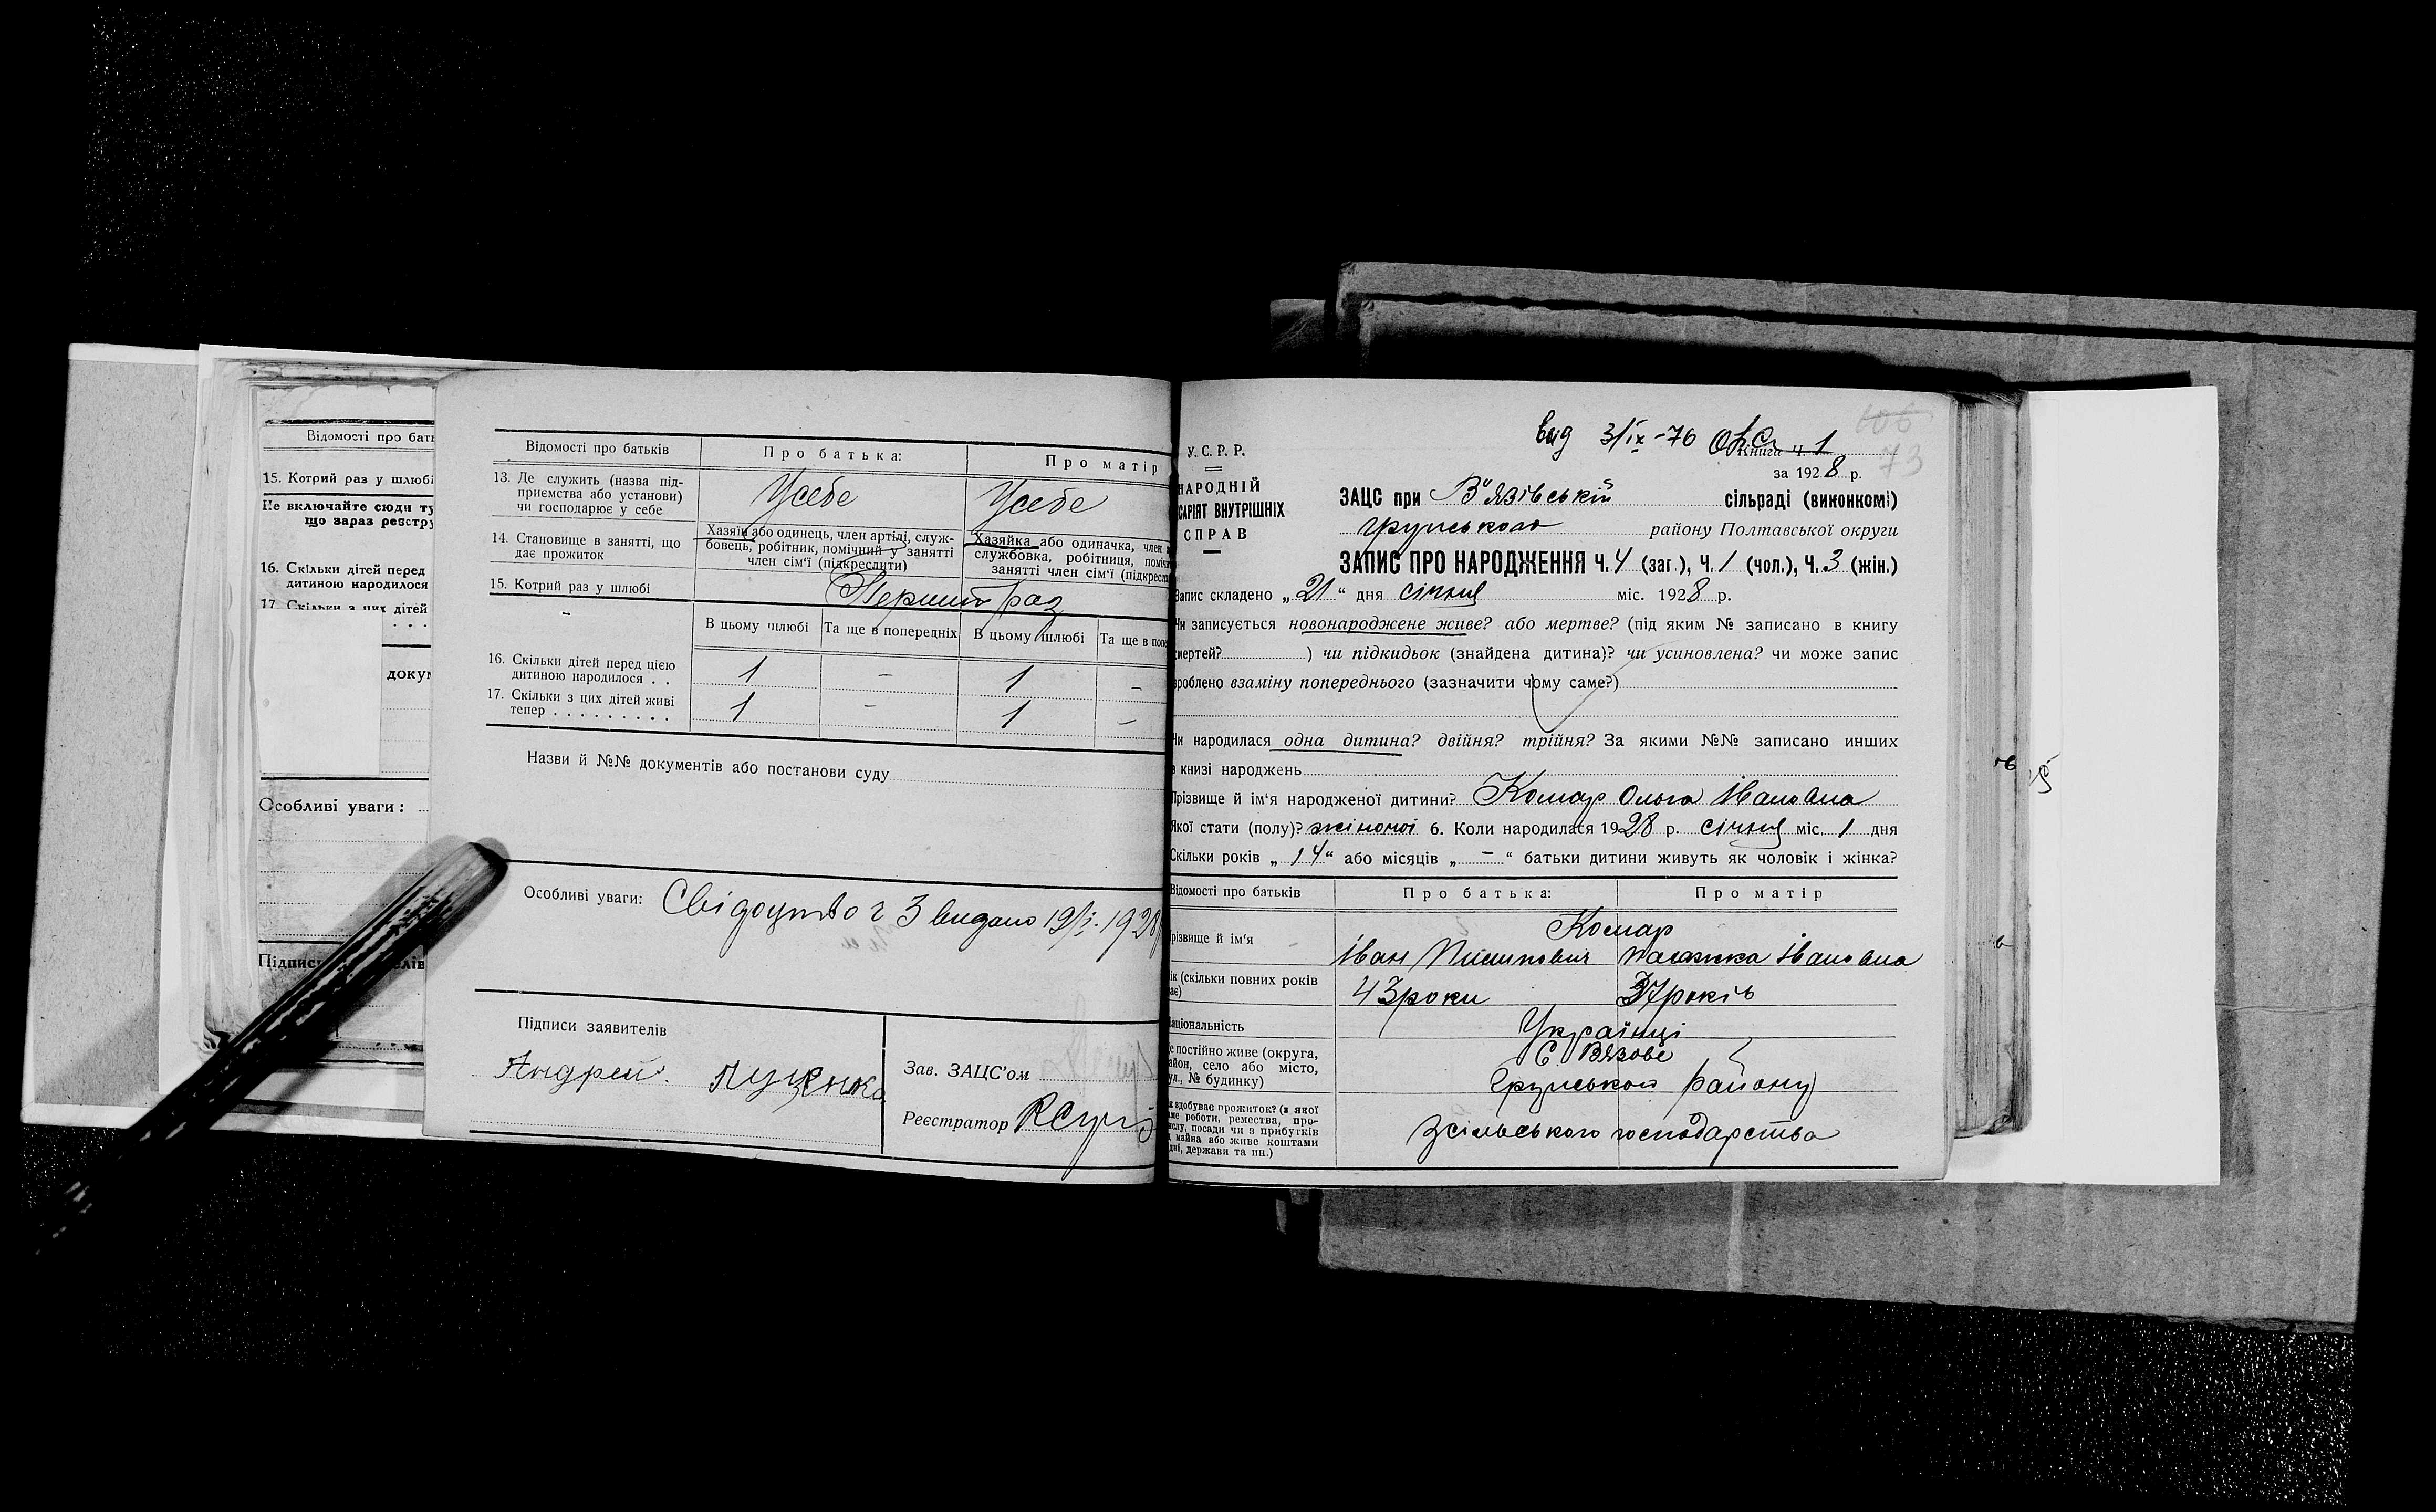 Відомості про бать
15. Котрий раз у шлюбі
Не включайте сюди ту
що зараз реєстру
16. Скільки дітей перед
дитиною народилося
17. Скільки з цих дітей
докум
Особливі уваги:
Підписи
Відомості про батьків
Про батька:
Про матір
13. Де служить (назва підприємства або установи) чи господарює у себе
Усебе
Усебе
14. Становище в занятті, що дає прожиток
Хазяїн або одинець, член артілі, службовець, робітник, помічний у занятті член сім'ї (підкреслити)
Хазяйка або одиначка, член
службовка, робітниця, поміч
занятті член сім'ї (підкресл
15. Котрий раз у шлюбі
Перший раз
В цьому шлюбі Та ще в попередніх В цьому шлюбі Та ще в попе
16. Скільки дітей перед цією дитиною народилося . . 1 – 1 –
17. Скільки з цих дітей живі тепер . . . . . . . . . 1 – 1 –
Назви й №№ документів або постанови суду
Особливі уваги: Свідоцтво ч 3 видано 19/I-1928
Підписи заявителів
Андрей Луценко
Зав. ЗАЦС'ом
Реєстратор
вид 3/IX-76
106
73
Книга ч. 1
за 1928 р.
У.С.Р.Р.
НАРОДНІЙ
САРІЯТ ВНУТРІШНІХ
СПРАВ
ЗАЦС при В'язівській сільраді (виконкомі)
Грунського району Полтавської округи
ЗАПИС ПРО НАРОДЖЕННЯ Ч. 4 (заг.), Ч. 1 (чол.), Ч. 3 (жін.)
Запис складено „21“ дня січня міс. 1928 р.
Чи записується новонароджене живе? або мертве? (під яким № записано в книгу
смертей? ) чи підкидьок (знайдена дитина)? чи усиновлена? чи може запис
зроблено взаміну попереднього (зазначити чому саме?)
Чи народилася одна дитина? двійня? трійня? За якими №№ записано инших
в книзі народжень
Прізвище й ім'я народженої дитини? Комар Ольга Івановна
Якої стати (полу)? жіночої 6. Коли народилася 1928 р. січня міс. 1 дня
Скільки років „14“ або місяців „–“ батьки дитини живуть як чоловік і жінка?
Відомості про батьків
Про батька:
Про матір
Комар
різвище й ім'я
Іван Пилипович
Палажка Івановна
ік (скільки повних років
ає)
43 роки
37 років
аціональність
Українці
е постійно живе (округа,
айон, село або місто,
ул., № будинку)
С Вязове
Грунського району
к здобуває прожиток? (з якої
аме роботи, ремества, про-
мслу, посади чи з прибутків
майна або живе коштами
дні, держави та ин.)
Зсільського господарства